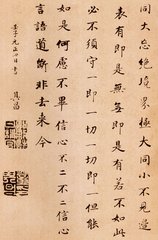 同大忘絕境界極大同小不見邊
表有即是無無即是有若不如此
必不須守一即一切一切即一但能
如是何慮不畢信心不二不二信心
言語道斷非去來今